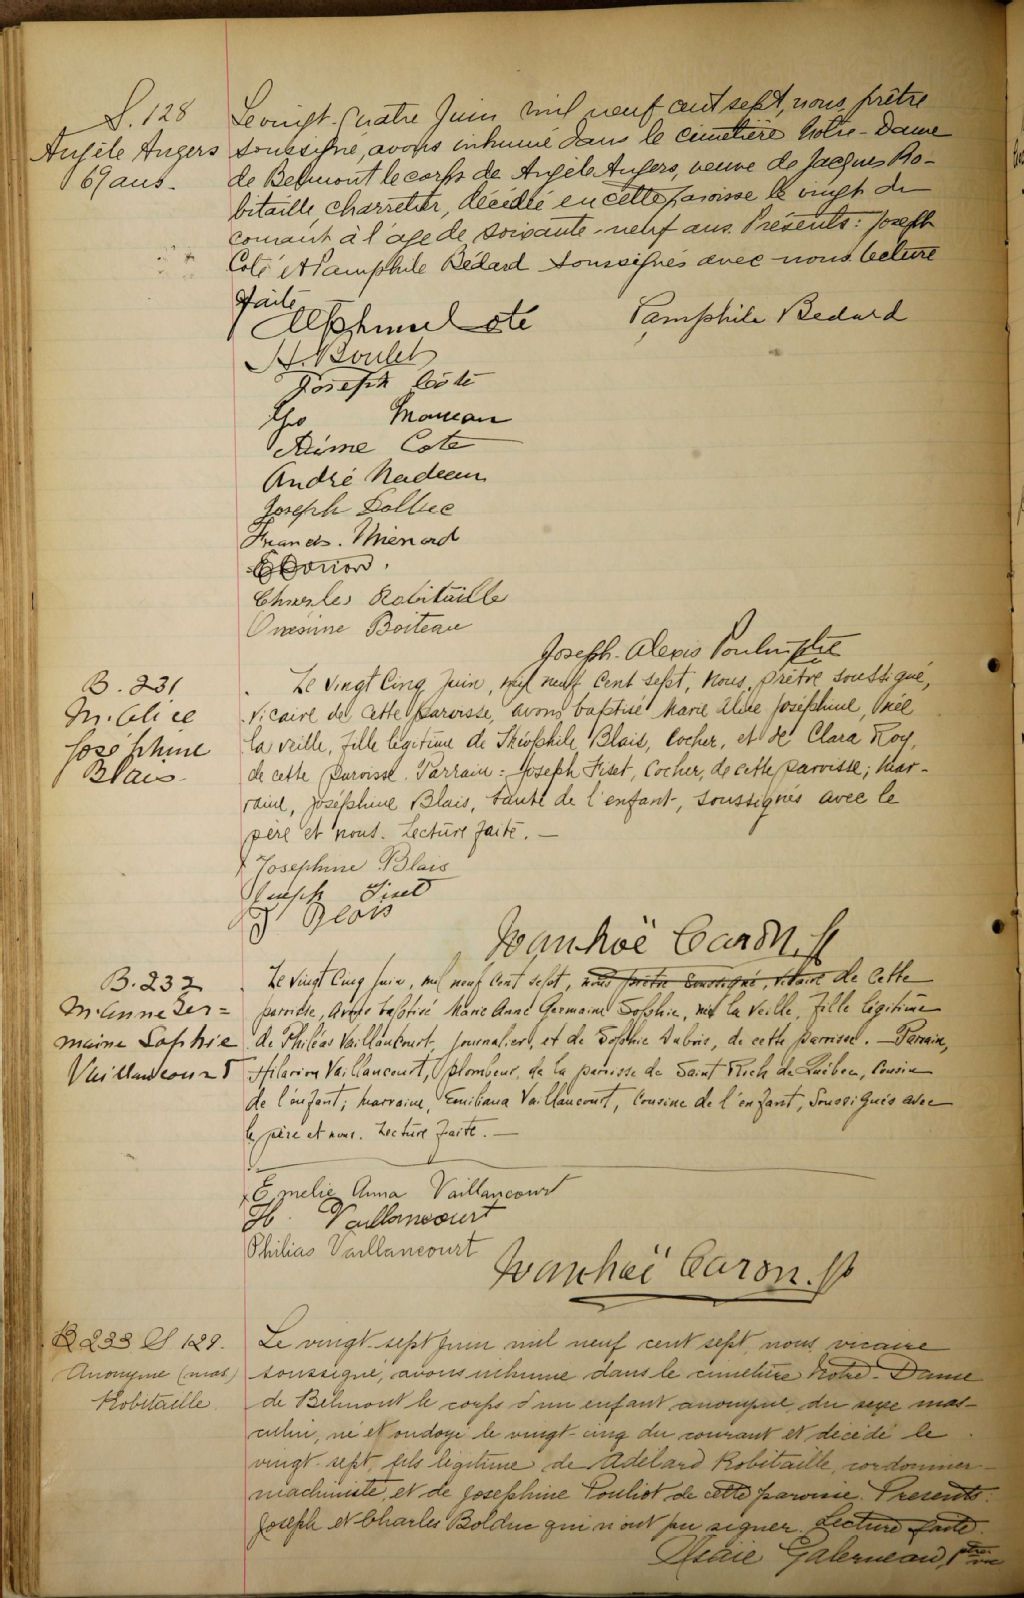 S. 128
Angèle Angers
69 ans.
Le vingt-quatre Juin mil neuf cent sept, nous, prêtre
soussigné, avons inhumé dans le cimetière Notre-Dame
de Belmont le corps de Angèle Angers, veuve de Jacques Ro-
bitaille, charretier, décédée en cette paroisse le vingt du
courant à l'age de soixante-neuf ans. Présents: Joseph
Coté et Pamphile Bédard soussignés avec nous. Lecture
faite
Alphonse Coté Pamphile Bedard
H. Boulet
Joseph Côté
Geo
Aimé Cote
André Nadeau
Joseph Bolduc
Francis. Menard
Charles Robitaille
Onésime Boiteau
Joseph-Alexis
B. 231
M. Alice
Joséphine
Blais.
Le vingt Cinq Juin, mil neuf Cent sept, nous, prêtre soussigné,
vicaire de cette paroisse, avons baptisé Marie Alice Joséphine, née
la veille, fille légitime de Théophile Blais, Cocher, et de Clara Roy,
de cette paroisse. Parrain: Joseph Fiset, Cocher, de cette paroisse; Mar-
raine, Joséphine Blais, tante de l'enfant, soussignés avec le
père et nous. Lecture faite. —
x Josephine Blais
Joseph Fiset
T Blais
Ivanhoë Caron, ptr
B. 232
M. Anne Ger=
maine Sophie
Vaillancourt
Le vingt Cinq Juin, mil neuf Cent sept, nous prêtre soussigné, vicaire de Cette
paroisse, avons baptisé Marie Anne Germaine Sophie, née la veille, fille légitime
de Philéas Vaillancourt, Journalier, et de Sophie Dubois, de cette paroisse. — Parrain,
Hilarion Vaillancourt, plombeur, de la paroisse de Saint Roch de Québec, Cousin
de l'enfant; marraine, Emiliana Vaillancourt, Cousine de l'enfant, Soussignés avec
le père et nous. Lecture faite. —
x Emelie Anna Vaillancourt
H. Vaillancourt
Philias Vaillancourt
Ivanhoë Caron. ptr
B 233 S 129.
Anonyme (mas)
Robitaille.
Le vingt-sept Juin mil neuf cent sept, nous, vicaire
soussigné, avons inhumé dans le cimetière Notre-Dame
de Belmont le corps d'un enfant anonyme, du sexe mas-
culin, né et ondoyé le vingt-cinq du courant et décédé le
vingt-sept, fils légitime de Adélard Robitaille, cordonnier-
machiniste, et de Josephine Pouliot de cette paroisse. Présents:
Joseph et Charles Bolduc qui n'ont pu signer. Lecture faite.
Galerneau, ptre
vic